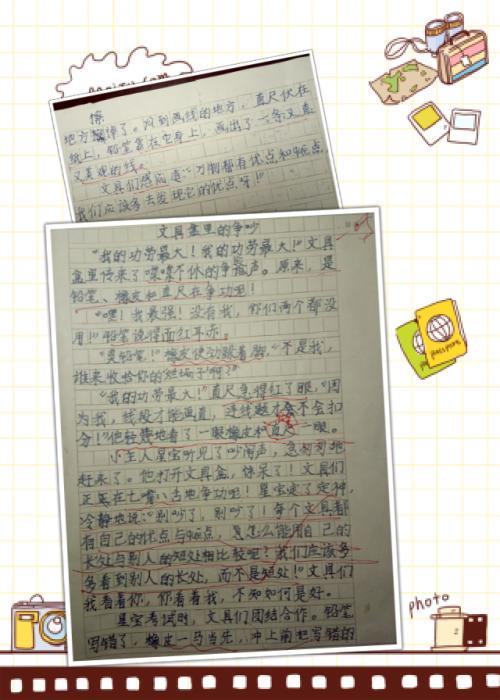 擦
地方擦掉了。该到画线的地方，直尺伏在
纸上，铅笔靠在它身上，画出了一条又直
又美观的线。
文具们感慨道：“万物都有优点和缺点，
我们应该多去发现它的优点呀！”
文具盒里的争吵
“我的功劳最大！我的功劳最大！”文具
盒里传来了喋喋不休的争吵声。原来，是
铅笔、橡皮和直尺在争功呢！
“嘿！我最强！没有我，你们两个都没
用！”铅笔说得面红耳赤。
“臭铅笔！”橡皮使劲跺着脚，“不是我，
谁来收拾你的烂摊子啊？”
“我的功劳最大！”直尺急得红了眼，“因
为我，线段才能画直，连线题才会不会扣
分！”他轻蔑地看了一眼橡皮和直尺一眼。
小主人星宝听见了吵闹声，急匆匆地
赶来了。他打开文具盒，惊呆了！文具们
正在七嘴八舌地争功呢！星宝定了定神，
冷静地说：“别吵了，别吵了！每个文具都
有自己的优点与缺点，怎么能用自己的
长处与别人的短处相比较呢？我们应该多
多看到别人的长处，而不是短处！”文具们
我看看你，你看看我，不知如何是好。
星宝考试时，文具们团结合作。铅笔
写错了，橡皮一马当先，冲上前把写错的
passport
photo
2